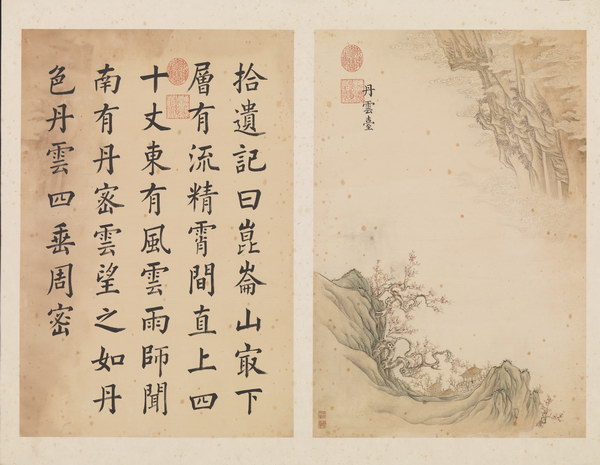 拾遺記曰崑崙山㝡下
層有流精霄間直上四
十丈東有風雲雨師聞
南有丹密雲望之如丹
色丹雲四垂周密
丹雲臺